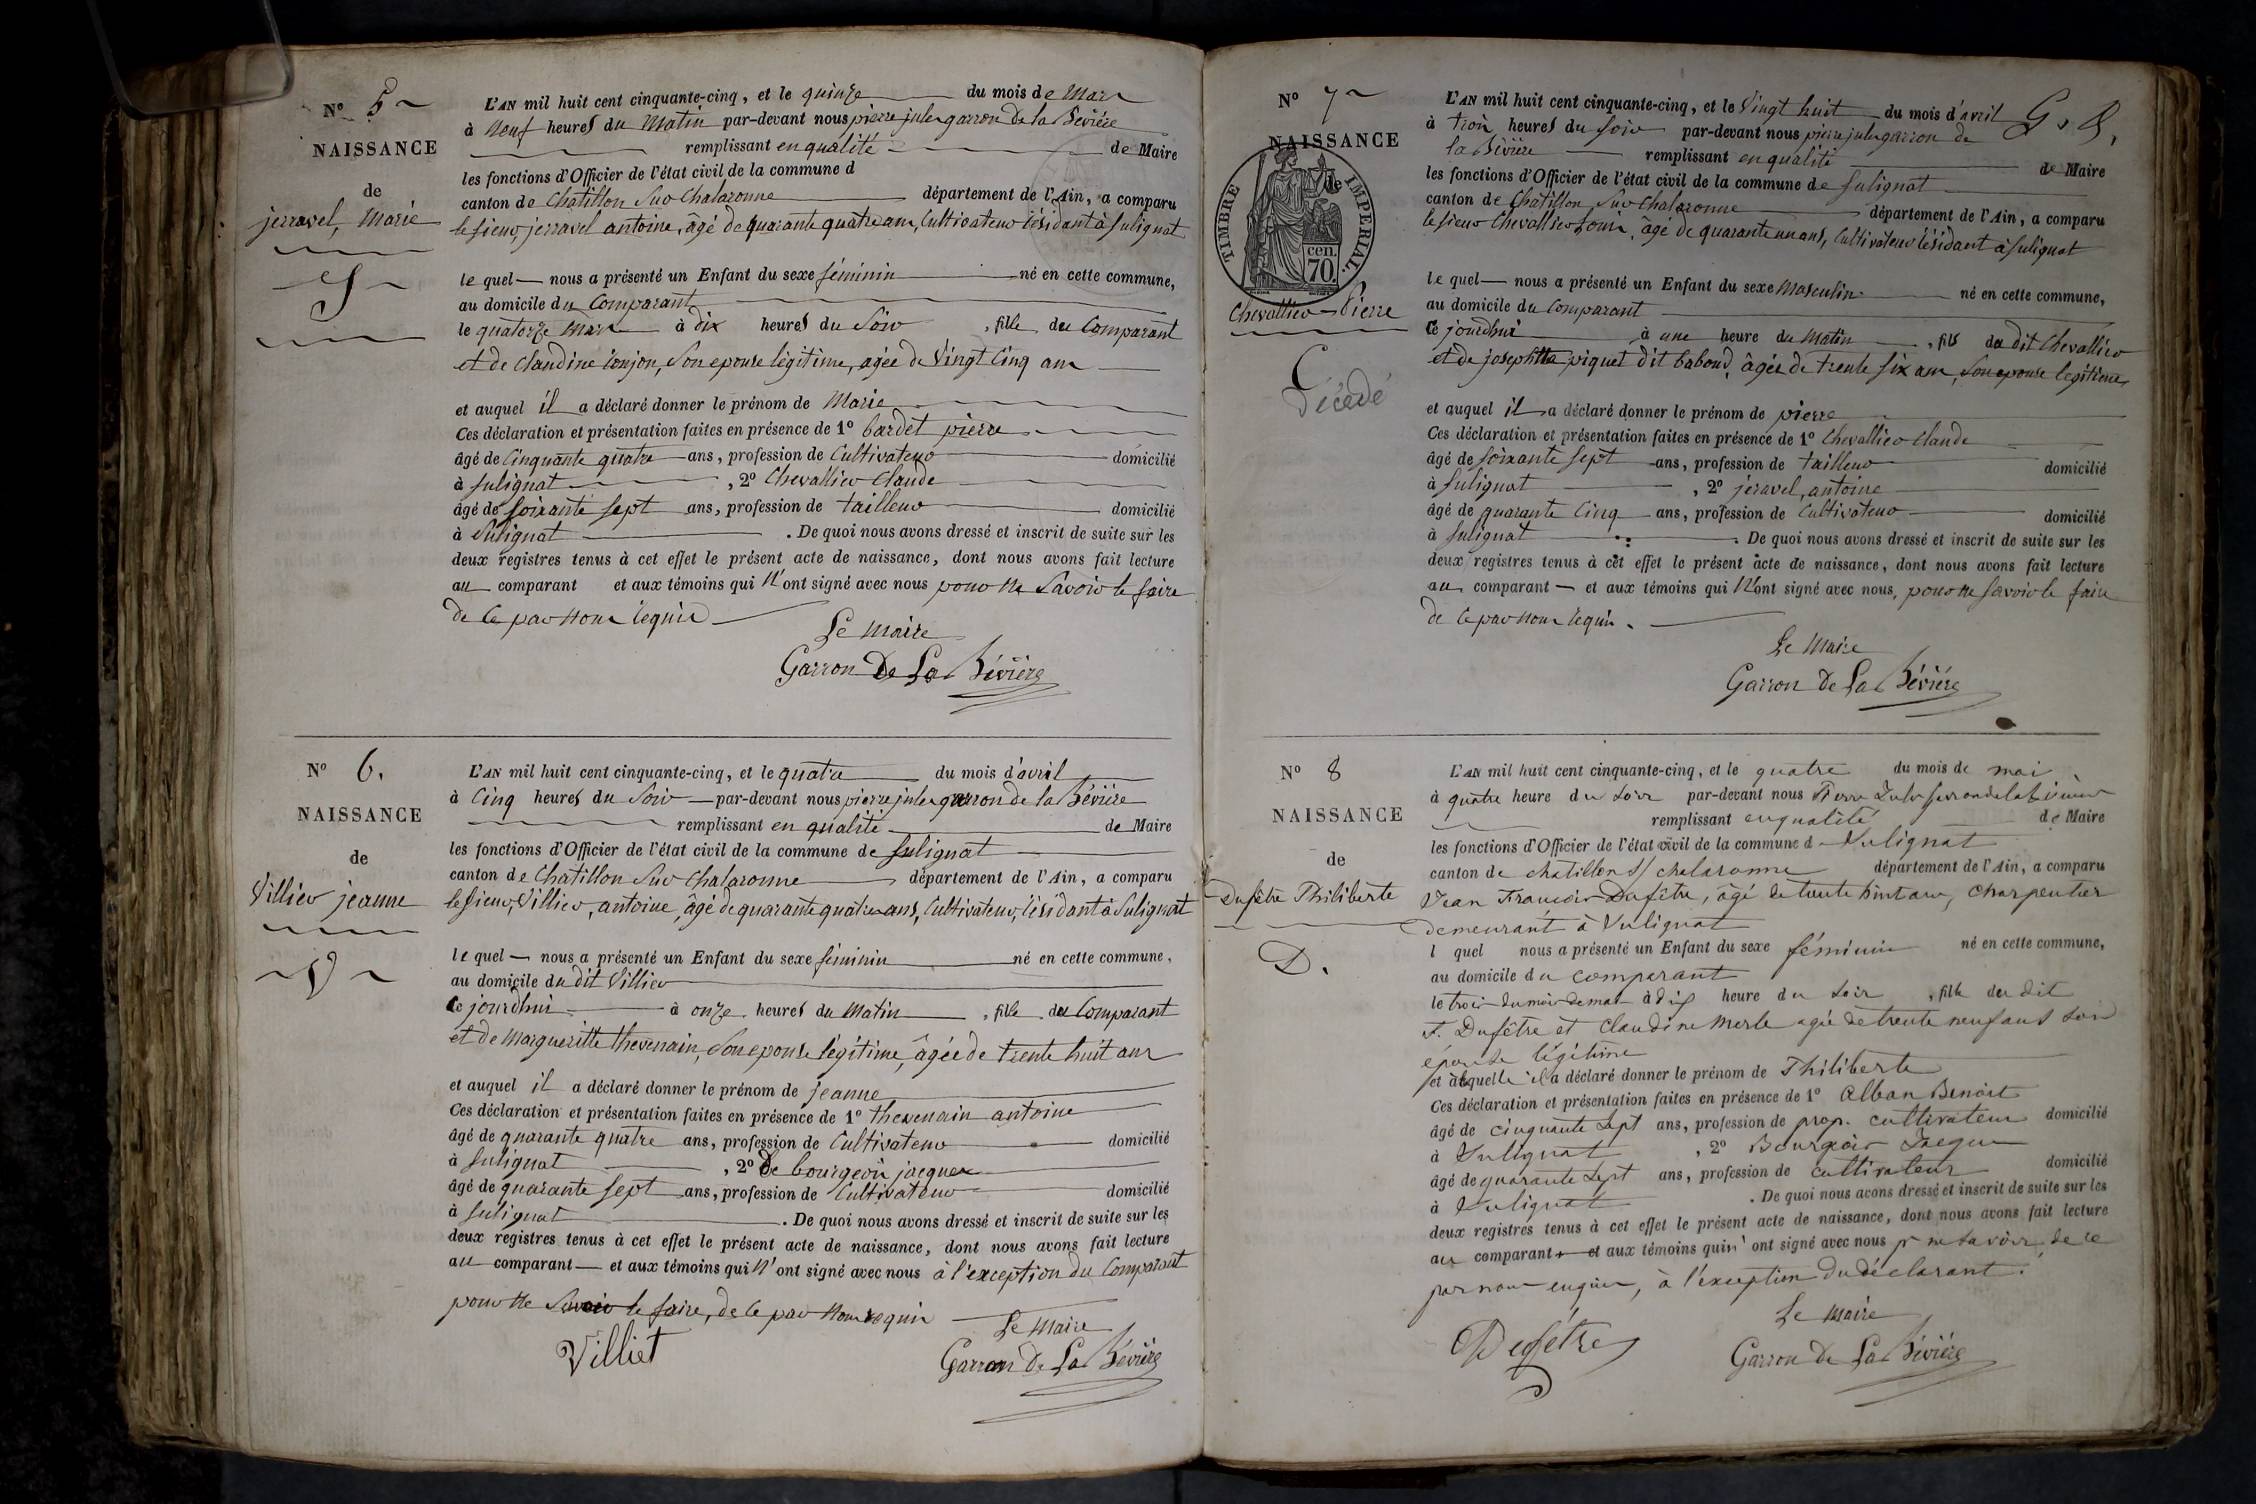 Nº 5
NAISSANCE
de
jerravel, Marie
J
L'AN mil huit cent cinquante-cinq, et le quinze du mois de Mars
à Neuf heures du Matin par-devant nous pierre jules garron de la Bévière
remplissant en qualité de Maire
les fonctions d'Officier de l'état civil de la commune d
canton de Chatillon Sur Chalaronne département de l'Ain, a comparu
le sieur, jerravel antoine, âgé de quarante quatre ans, Cultivateur résidant à Sulignat
le quel nous a présenté un Enfant du sexe féminin né en cette commune,
au domicile du Comparant
le quatorze Mars à dix heures du Soir, fille du Comparant
et de Claudine Conjon, Son epouse légitime, agée de Vingt Cinq ans
et auquel il a déclaré donner le prénom de Marie
Ces déclaration et présentation faites en présence de 1º bardet pierre
âgé de Cinquante quatre ans, profession de Cultivateur domicilié
à Sulignat, 2º Chevallier Claude
âgé de Soixante Sept ans, profession de tailleur domicilié
à Sulignat. De quoi nous avons dressé et inscrit de suite sur les
deux registres tenus à cet effet le présent acte de naissance, dont nous avons fait lecture
au comparant et aux témoins qui N'ont signé avec nous pour Ne Savoir le faire
de Ce par Nous requis
Le Maire
Garron De La Bévière
Nº 6.
NAISSANCE
de
Villier jeanne
V
L'AN mil huit cent cinquante-cinq, et le quatre du mois d'avril
à Cinq heures du Soir par-devant nous pierre jules garron de la Bévière
remplissant en qualité de Maire
les fonctions d'Officier de l'état civil de la commune de Sulignat
canton de Chatillon Sur Chalaronne département de l'Ain, a comparu
le Sieur, Villier, antoine, âgé de quarante quatre ans, Cultivateur, résidant à Sulignat
le quel nous a présenté un Enfant du sexe féminin né en cette commune,
au domicile du dit Villier
Ce jourdhui à onze heures du Matin, fille du Comparant
et de Margueritte thevenain, Son epouse légitime, âgée de trente huit ans
et auquel il a déclaré donner le prénom de jeanne
Ces déclaration et présentation faites en présence de 1º thevenain antoine
âgé de quarante quatre ans, profession de Cultivateur domicilié
à Sulignat, 2º De bourgeois jacques
âgé de quarante Sept ans, profession de Cultivateur domicilié
à Sulignat. De quoi nous avons dressé et inscrit de suite sur les
deux registres tenus à cet effet le présent acte de naissance, dont nous avons fait lecture
au comparant et aux témoins qui N'ont signé avec nous à l'exception du Comparant
pour Ne Savoir le faire, de Ce par Nous requis
Le Maire
Villiet
Garron De La Bévière
Nº 7
NAISSANCE
de
TIMBRE IMPERIAL.
cen.
70.
Chevallier Pierre
C
Décédé
L'AN mil huit cent cinquante-cinq, et le Vingt huit du mois d'avril
à trois heures du Soir par-devant nous pierre jules garron de
la Bévière remplissant en qualité de Maire
les fonctions d'Officier de l'état civil de la commune de Sulignat
canton de Chatillon Sur Chalaronne département de l'Ain, a comparu
le Sieur Chevallier Louis, âgé de quarante un ans, Cultivateur résidant à Sulignat
le quel nous a présenté un Enfant du sexe Masculin né en cette commune,
au domicile du Comparant
Ce jourdhui à une heure du Matin, fils du dit Chevallier
et de josephtta piquet dit babond, âgée de trente six ans, Son epouse legitime
et auquel il a déclaré donner le prénom de pierre
Ces déclaration et présentation faites en présence de 1º Chevallier Claude
âgé de Soixante Sept ans, profession de tailleur domicilié
à Sulignat, 2º jeravel, antoine
âgé de quarante Cinq ans, profession de Cultivateur domicilié
à Sulignat. De quoi nous avons dressé et inscrit de suite sur les
deux registres tenus à cet effet le présent acte de naissance, dont nous avons fait lecture
au comparant et aux témoins qui N'ont signé avec nous, pour Ne Savoir le faire
de Ce par Nous requis.
Le Maire
Garron De La Bévière
Nº 8
NAISSANCE
de
Dufêtre Philiberte
D.
L'AN mil huit cent cinquante-cinq, et le quatre du mois de mai
à quatre heure du soir par-devant nous Pierre Jules garron de la Bévière
remplissant en qualité de Maire
les fonctions d'Officier de l'état civil de la commune d Sulignat
canton de chatillon s/ chalaronne département de l'Ain, a comparu
Jean François Dufêtre, âgé de trente huit ans, charpentier
demeurant à Sulignat
l quel nous a présenté un Enfant du sexe féminin né en cette commune,
au domicile du comparant
le trois du mois de mai à dix heure du soir, fille du dit
F. Dufêtre et Claudine Merle agée de trente neuf ans son
épouse légitime
et à laquelle il a déclaré donner le prénom de Philiberte
Ces déclaration et présentation faites en présence de 1º Alban Benoit
âgé de cinquante sept ans, profession de prop. cultivateur domicilié
à Sulignat, 2º Bourgeois Jacques
âgé de quarante sept ans, profession de cultivateur domicilié
à Sulignat. De quoi nous avons dressé et inscrit de suite sur les
deux registres tenus à cet effet le présent acte de naissance, dont nous avons fait lecture
au comparant et aux témoins qui n'ont signé avec nous pr ne savoir, de ce
par nous enquis, à l'exception du déclarant.
Le Maire
Dufêtre
Garron De La Bévière